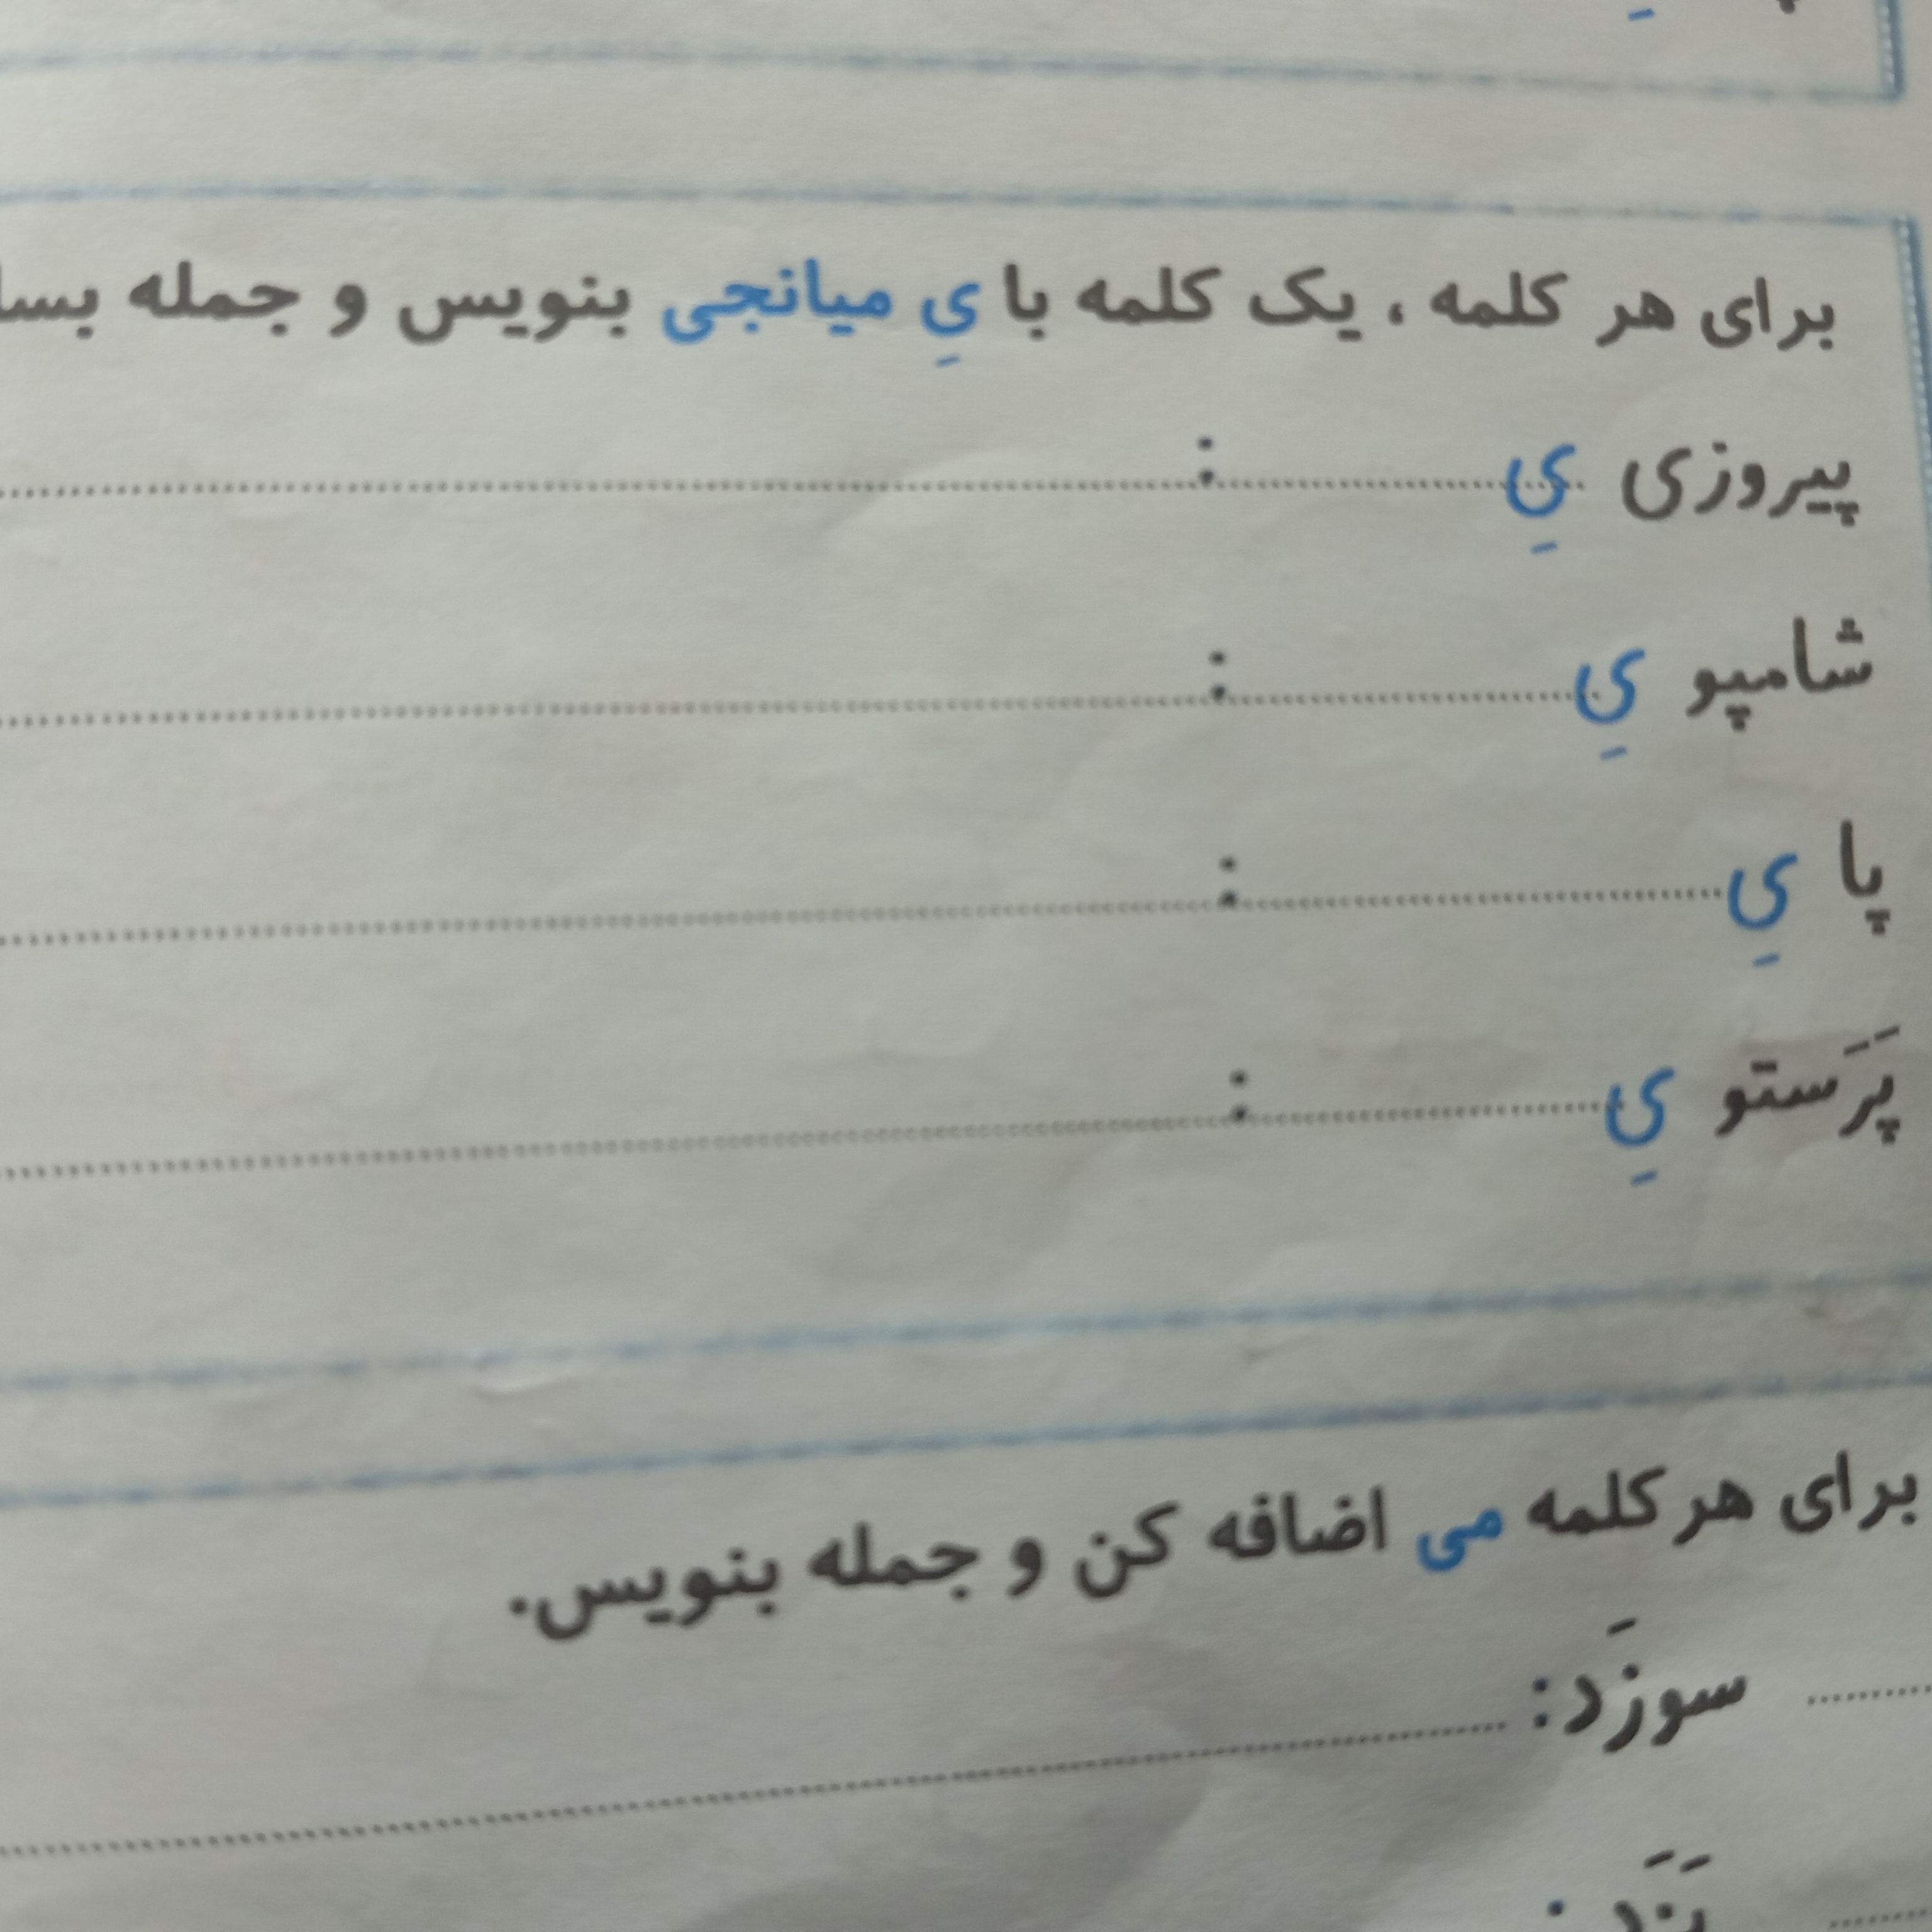 برای هر کلمه ، یک کلمه با یِ میانجی بنویس و جمله بسا
پیروزی یِ.....................:.....................
شامپو یِ.....................:.....................
پا یِ.....................:.....................
پَرَستو یِ.....................:.....................
برای هر کلمه می اضافه کن و جمله بنویس.
.......... سوزَد:.....................